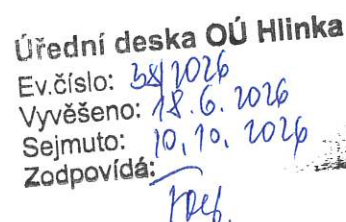 Úřední deska OÚ Hlinka
Ev.číslo: 38/2026
Vyvěšeno: 18.6. 2026
Sejmuto: 10.10. 2026
Zodpovídá: